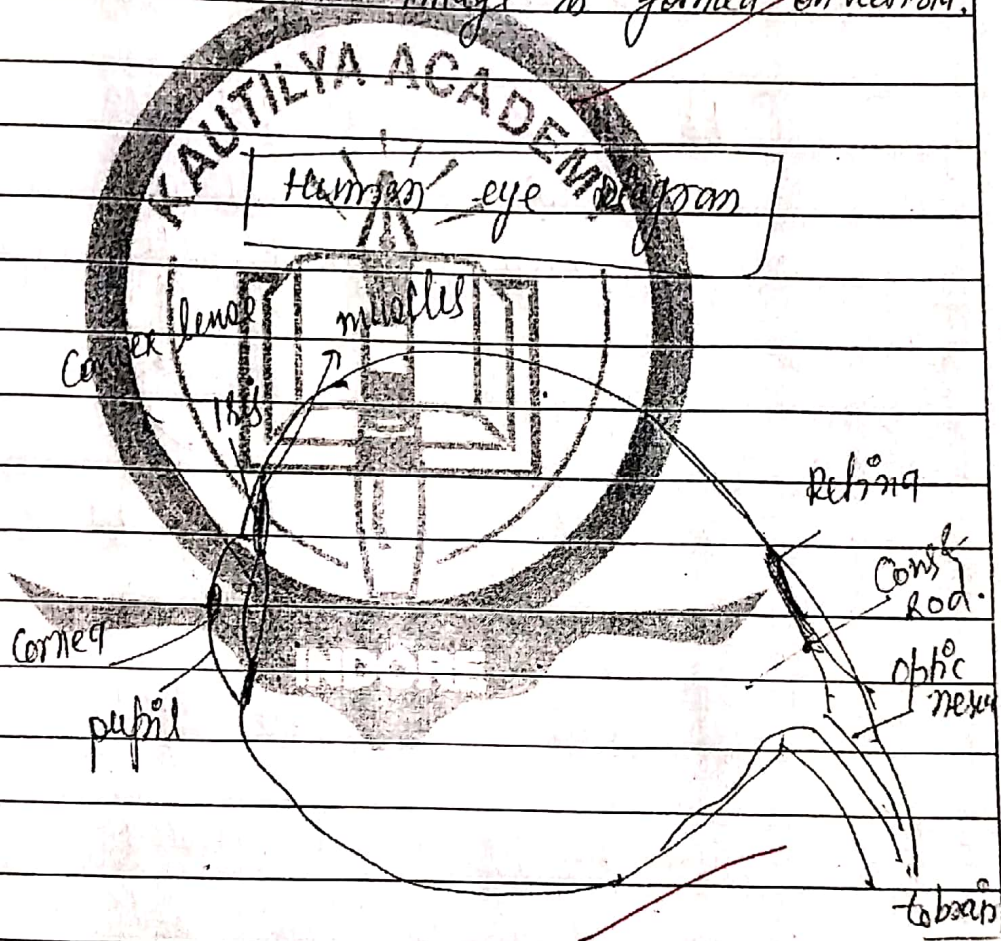 image is formed on retina.
KAUTILYA ACADEMY
Human eye Diagram
Convex lense
muscles
Iris
Retina
Cons &
Rod.
Cornea
optic
nerve
pupil
INDORE
to brain